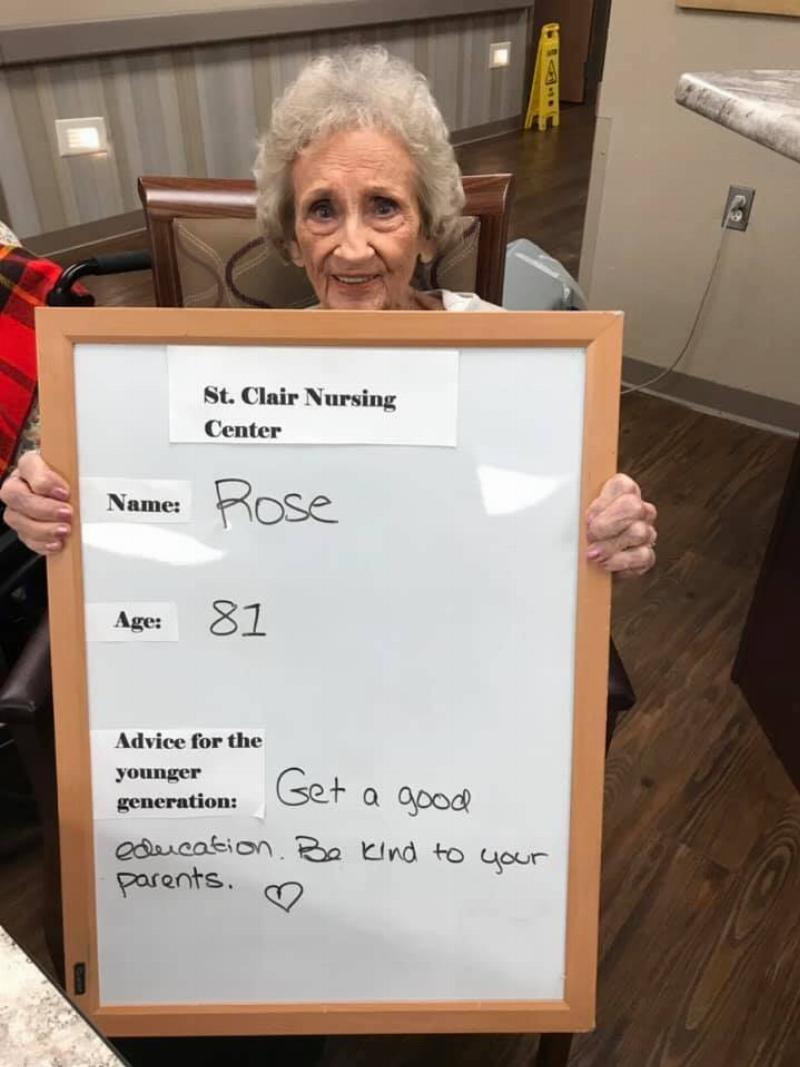 St. Clair Nursing
Center
Name: Rose
Age: 81
Advice for the
younger
generation: Get a good
education. Be kind to your
parents. ♡